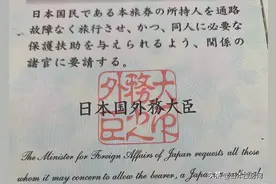 日本国民である本旅券の所持人を通路
故障なく旅行させ、かつ、同人に必要な
保護扶助を与えられるよう、関係の
諸官に要請する。
日本国外務大臣
The Minister for Foreign Affairs of Japan requests all those
whom it may concern to allow the bearer, a Japanese